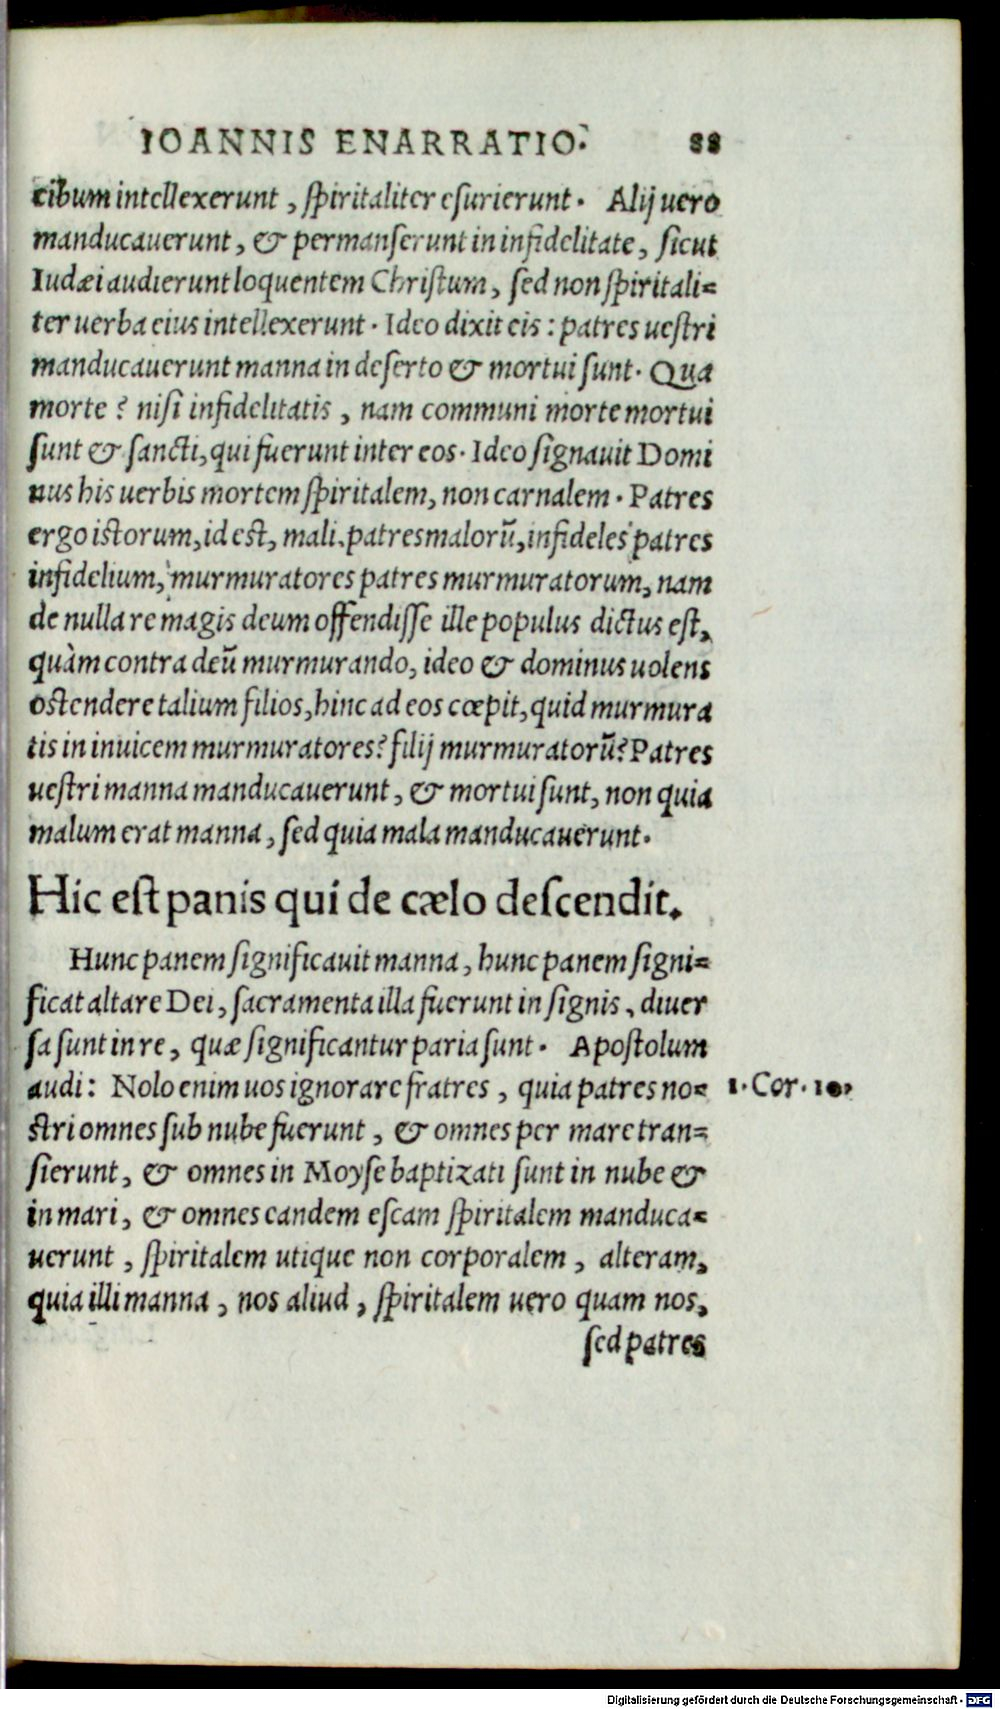 IOANNIS ENARRATIO. 88
cibum intellexerunt, spiritaliter esurierunt. Alij uero
manducauerunt, & permanserunt in infidelitate, sicut
Iudæi audierunt loquentem Christum, sed non spiritali=
ter uerba eius intellexerunt. Ideo dixit eis: patres uestri
manducauerunt manna in deserto & mortui sunt. Qua
morte? nisi infidelitatis, nam communi morte mortui
sunt & sancti, qui fuerunt inter eos. Ideo signauit Domi
nus his uerbis mortem spiritalem, non carnalem. Patres
ergo istorum, id est, mali, patres malorũ, infideles patres
infidelium, murmuratores patres murmuratorum, nam
de nulla re magis deum offendisse ille populus dictus est,
quàm contra deũ murmurando, ideo & dominus uolens
ostendere talium filios, hinc ad eos cœpit, quid murmura
tis in inuicem murmuratores? filij murmuratorũ? Patres
uestri manna manducauerunt, & mortui sunt, non quia
malum erat manna, sed quia mala manducauerunt.
Hic est panis qui de cælo descendit.
Hunc panem significauit manna, hunc panem signi=
ficat altare Dei, sacramenta illa fuerunt in signis, diuer
sa sunt in re, quæ significantur paria sunt. Apostolum
audi: Nolo enim uos ignorare fratres, quia patres no= 1. Cor. 10.
stri omnes sub nube fuerunt, & omnes per mare tran=
sierunt, & omnes in Moyse baptizati sunt in nube &
in mari, & omnes eandem escam spiritalem manduca=
uerunt, spiritalem utique non corporalem, alteram,
quia illi manna, nos aliud, spiritalem uero quam nos,
sed patres
Digitalisierung gefördert durch die Deutsche Forschungsgemeinschaft - DFG